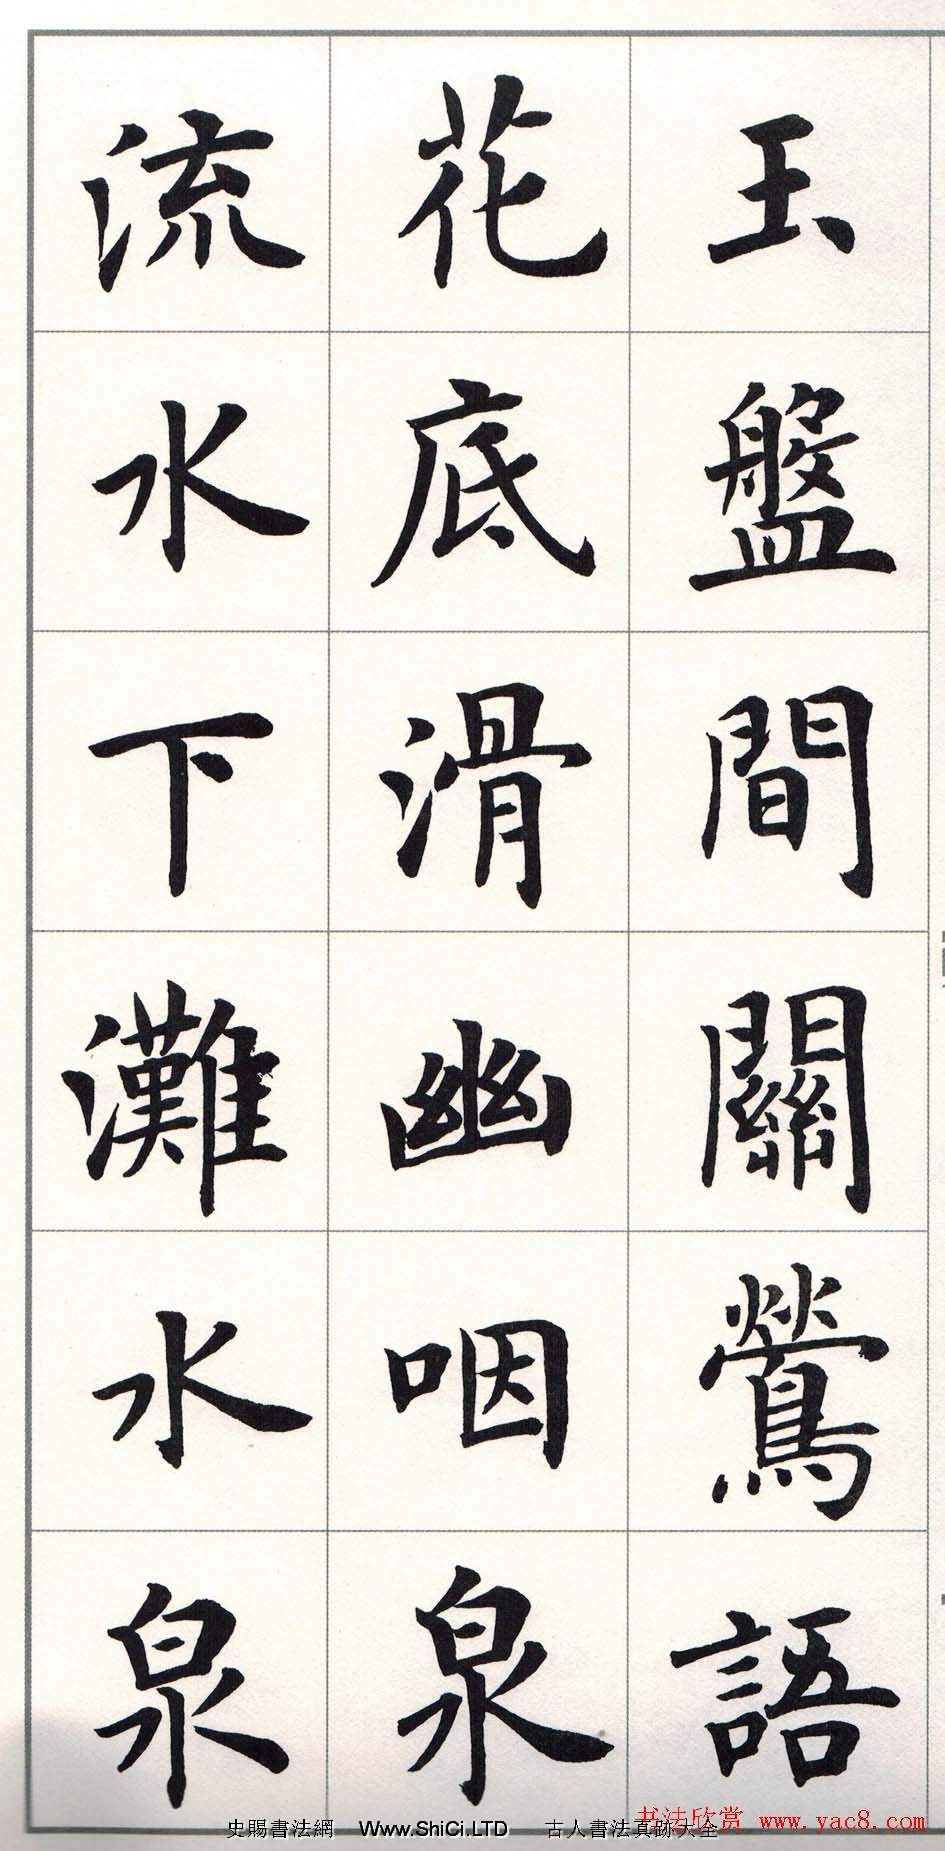 玉盤間關鶯語
花底滑幽咽泉
流水下灘水泉
书法欣赏 www.yac8.com
史賜書法網 Www.ShiCi.LTD 古人書法真跡大全